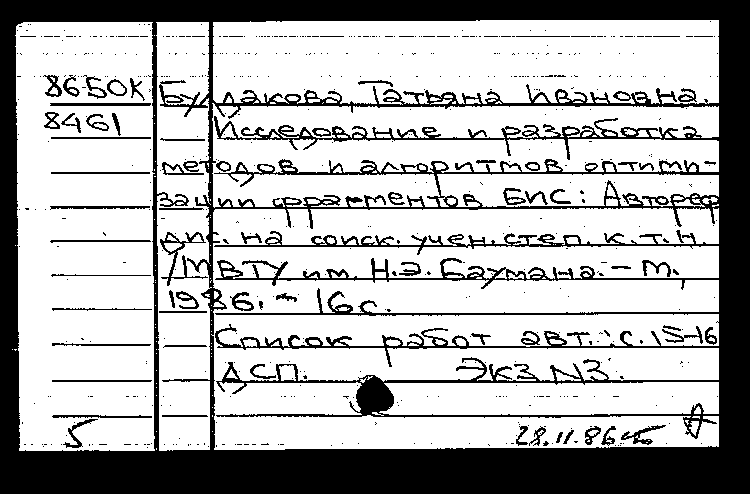 8650К Булдакова, Татьяна Ивановна.
8461 Исследование и разработка
методов и алгоритмов оптими-
зации фрагментов БИС: Автореф
дис. на соиск. учен. степ. к.т.н.
/МВТУ им. Н.Э. Баумана. – М.,
1986. – 16с.
Список работ авт.: с. 15-16
ДСП. Экз. N3.
5 28.11.86